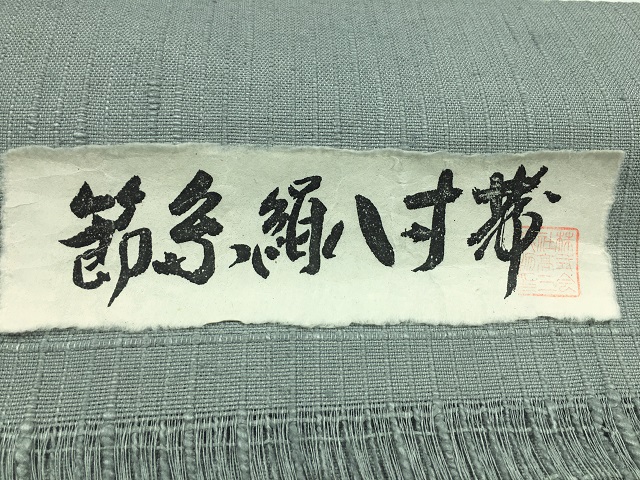 節糸絹八寸帯